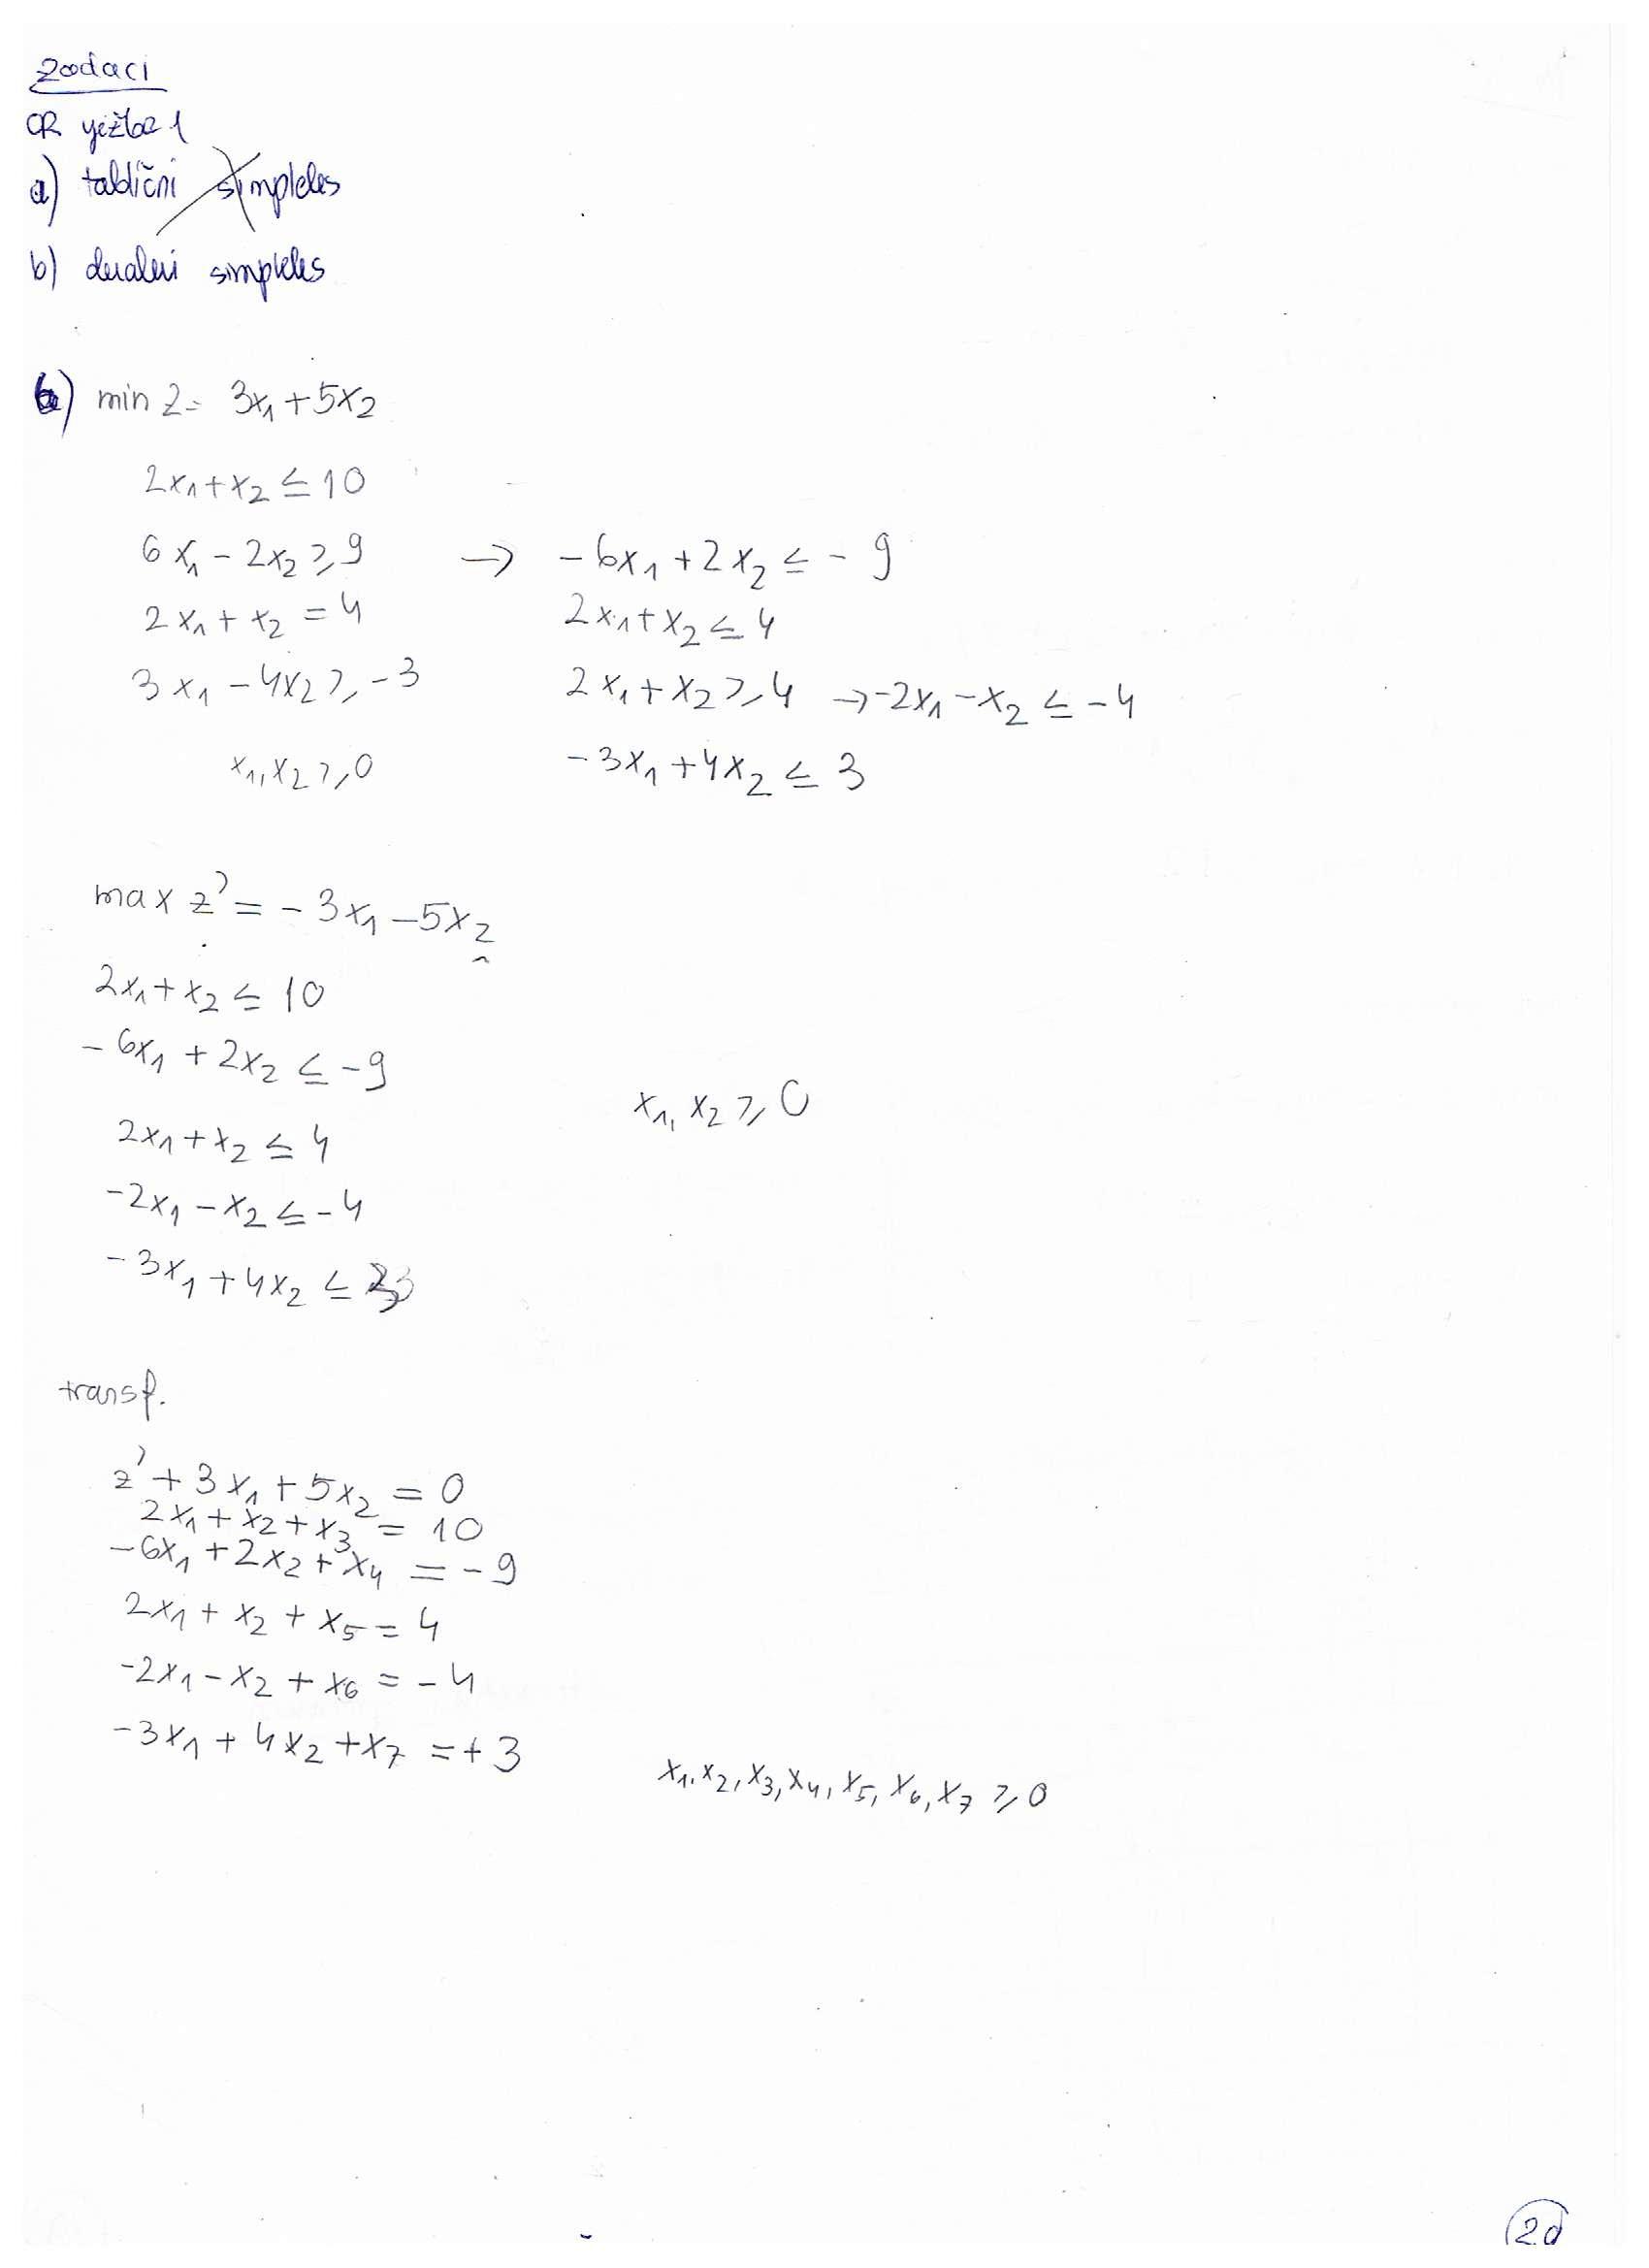 Zadaci
OR vježba 1
a) tablični simpleks
b) dualni simpleks
b) min z = 3x₁ + 5x₂
2x₁ + x₂ ≤ 10
6x₁ - 2x₂ ≥ 9 → -6x₁ + 2x₂ ≤ -9
2x₁ + x₂ = 4 2x₁ + x₂ ≤ 4
3x₁ - 4x₂ ≥ -3 2x₁ + x₂ ≥ 4 → -2x₁ - x₂ ≤ -4
x₁, x₂ ≥ 0 -3x₁ + 4x₂ ≤ 3
max z' = -3x₁ - 5x₂
2x₁ + x₂ ≤ 10
-6x₁ + 2x₂ ≤ -9
x₁, x₂ ≥ 0
2x₁ + x₂ ≤ 4
-2x₁ - x₂ ≤ -4
-3x₁ + 4x₂ ≤ 3
transf.
z' + 3x₁ + 5x₂ = 0
2x₁ + x₂ + x₃ = 10
-6x₁ + 2x₂ + x₄ = -9
2x₁ + x₂ + x₅ = 4
-2x₁ - x₂ + x₆ = -4
-3x₁ + 4x₂ + x₇ = +3
x₁, x₂, x₃, x₄, x₅, x₆, x₇ ≥ 0